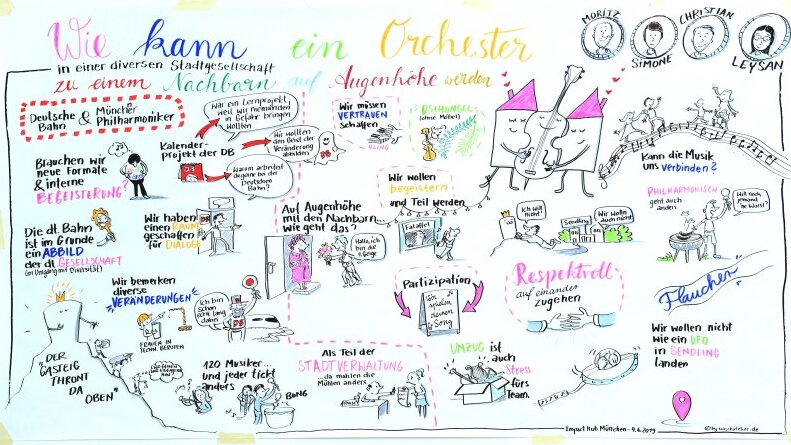 Wie kann ein Orchester
in einer diversen Stadtgesellschaft
zu einem Nachbarn auf Augenhöhe werden
MORITZ
SIMONE
CHRISTIAN
LEYSAN
Deutsche & Münchner
Bahn Philharmoniker
Kalender-
Projekt der DB
War ein Lernprojekt,
weil wir niemanden
in Gefahr bringen
wollten
Wir wollten
den Geist der
Veränderung
abbilden
Warum arbeitest
degane bei der
Deutschen
Bahn?
Brauchen wir
neue Formate
& interne
BEGEISTERUNG?
Die dt. Bahn
ist im Grunde
ein ABBILD
der dt. GESELLSCHAFT
(im Umgang mit Diversität)
Wir haben
einen RAUM
geschaffen
für DIALOGE
Wir bemerken
diverse
VERÄNDERUNGEN
FRAUEN IN
TECHN. BERUFEN
Ich bin
schon
lang
dabei
"DER
GASTEIG
THRONT
DA
OBEN"
120 Musiker...
und jeder tickt
anders
BONG
Wir müssen
VERTRAUEN
schaffen
PLING
DSCHUNGEL
(ohne Möbel)
Wir wollen
begeistern
und Teil werden
Auf Augenhöhe
mit den Nachbarn...
wie geht das?
Hallo, ich
bin die
1. Geige
Partizipation
Wir
spielen
deinen
Song
Als Teil der
STADTVERWALTUNG
... da mahlen die
Mühlen anders
UMZUG ist
auch
Stress
fürs
Team.
Ich will
nicht!
Sendling
Wir wolln
auch nicht!
Respektvoll
auf einander
zugehen
Kann die Musik
uns verbinden?
PHILHARMONISCH
geht auch
anders
Will noch
jemand
ne Wurst?
Flaucher
Wir wollen nicht
wie ein UFO
in SENDLING
landen
Impact Hub München - 4.6.2019